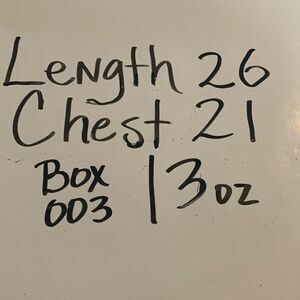 Length 26
Chest 21
Box 003
13 oz